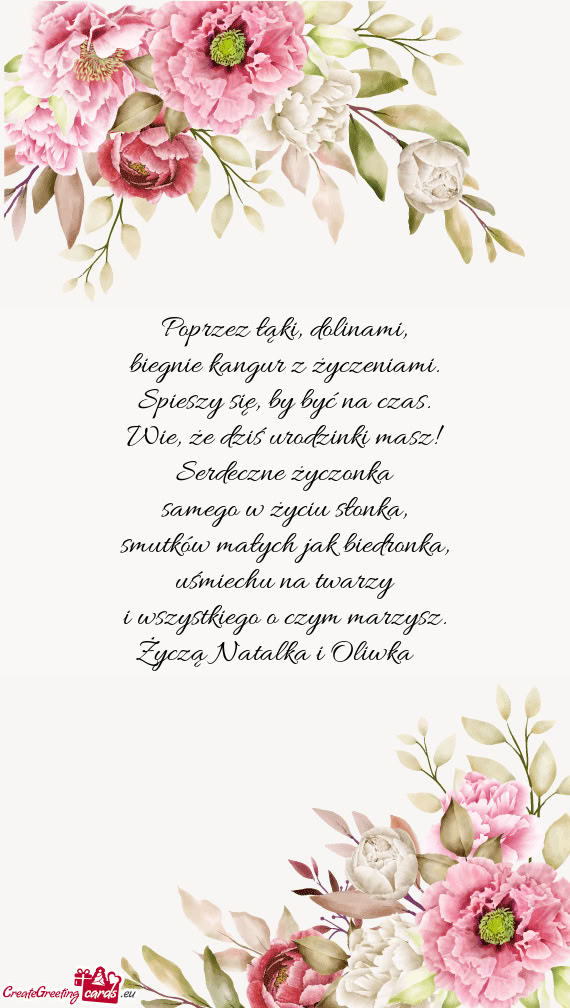 Poprzez łąki, dolinami,
biegnie kangur z życzeniami.
Spieszy się, by być na czas.
Wie, że dziś urodzinki masz!
Serdeczne życzonka
samego w życiu słonka,
smutków małych jak biedronka,
uśmiechu na twarzy
i wszystkiego o czym marzysz.
Życzą Natalka i Oliwka
CreateGreeting cards .eu